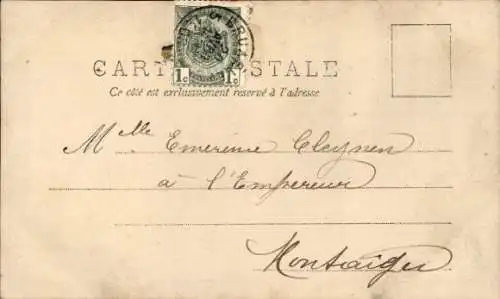 BRUX
CARTE POSTALE
1c 1c
Ce côté est exclusivement reservé à l'adresse
Melle Emerine Cleynen
à l'Empereur
Montaigu